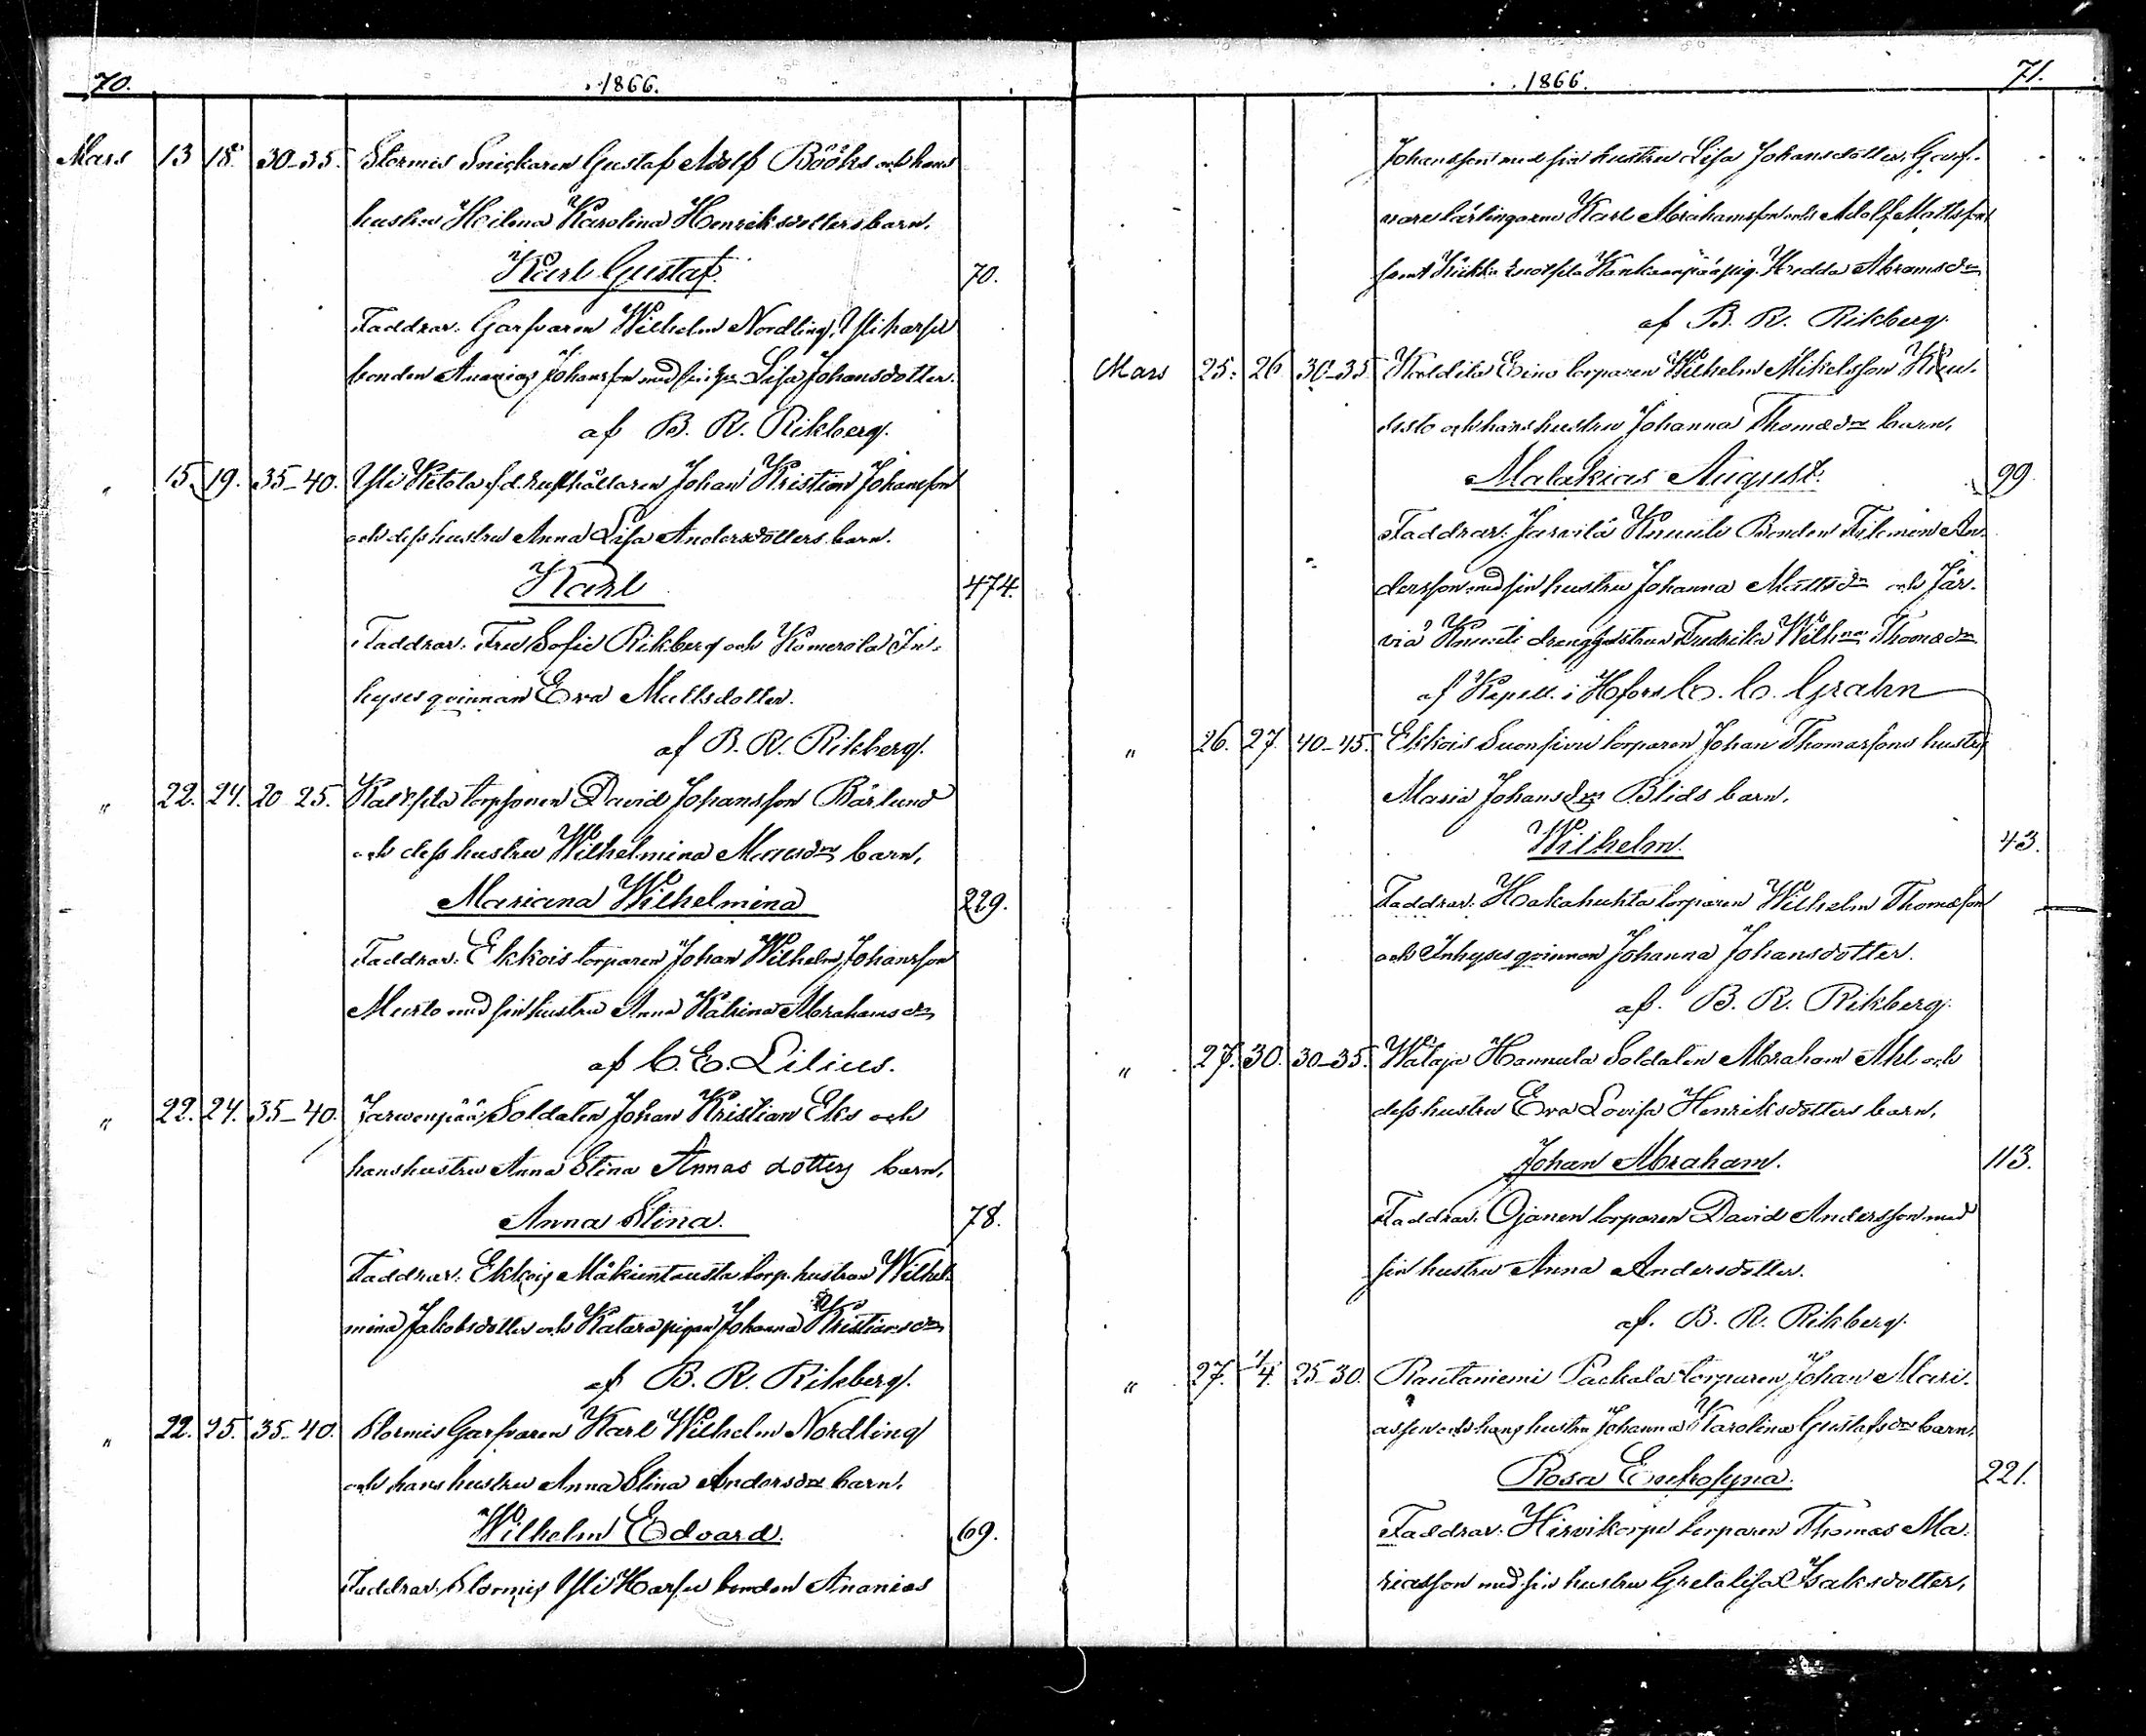 70. 1866.
Mars 13 18. 30-35. Stormis Snickaren Gustaf Adolf Bööks och hans
hustru Heilena Karolina Henriksdotters barn,
Karl Gustaf. 70.
Faddrar: Garfvaren Wilhelm Nordling, Yliharsu
bonden Ananias Johansson med sin hu Lisa Johansdotter.
af B. R. Rikberg.
" 15. 19. 35-40. Yli Ketola f.d. rusthållaren Johan Kristian Johansson
och dess hustru Anna Lisa Andersdotters barn.
Karl 474.
Faddrar: Fru Sofie Rikberg och Komerola In-
hyses qvinnan Eva Mattsdotter.
af B. R. Rikberg.
" 22. 24. 20-25. torpparen David Johansson Bärlund
och dess hustru Wilhelmina barn,
Mariana Wilhelmina 229.
Faddrar: Ekkois torparen Johan Wilhelm Johansson
Murto med sin hustru Anna Katrina Abrahamsdr
af C. E. Lilius.
" 22. 24. 35-40. Jarwenpää Soldaten Johan Kristian Eks och
hans hustru Anna Stina Annas dotters barn,
Anna Stina. 78.
Faddrar: Ekkois Mäkientausta torp. hustrun Wilhel-
mina Jakobsdotter och Katara pigan Johanna Kristiansdr
af B. R. Rikberg.
" 22. 25. 35-40. Stormis Garfvaren Karl Wilhelm Nordling
och hans hustru Anna Stina Andersdrs barn,
Wilhelm Edvard. 69.
Faddrar: Stormis Yli Harsu bonden Ananias
1866. 71.
Johansson med sin hustru Lisa Johansdotter, Garf-
vare lärlingarne Karl Abrahamsson och Adolf Mattsson
samt Kankaanpää pig. Hedda Abramsdr
af B. R. Rikberg.
Mars 25. 26 30-35 Eino torparen Wilhelm Mikelsson
och hans hustru Johanna Thomædrs barn,
Malakias August. 99.
Faddrar: Jarvilä Knuuti Bonden Filemon An-
dersson med sin hustru Johanna Mattsdr och Jär-
vilä Knuuti dränghustrun Fredrika Wilhna Thomædr
af Kapell. i Hfors C. C. Grahn
" 26. 27. 40-45. Ekkois Suonsivu torparen Johan Thomassons hustrs
Maria Johansdrs Blids barn,
Wilhelm. 43.
Faddrar: Hakahuhta torparen Wilhelm Thomasson
och Inhyses qvinnan Johanna Johansdotter.
af. B. R. Rikberg.
" 27. 30. 30-35. Wataja Hannula Soldaten Abraham Ahl och
dess hustru Eva Lovisa Henriksdotters barn,
Johan Abraham. 113.
Faddrar: Ojanen torparen David Andersson med
sin hustru Anna Andersdotter.
af. B. R. Rikberg.
" 27. 1/4. 25-30. Rautaniemi Packala torparen Johan Mari-
asson och hans hustru Johanna Karolina Gustafsdrs barn,
Rosa Eufrosyna. 221.
Faddrar: Hirvikorpi torparen Thomas Ma-
riasson med sin hustru Gretalisa Isaksdotter,